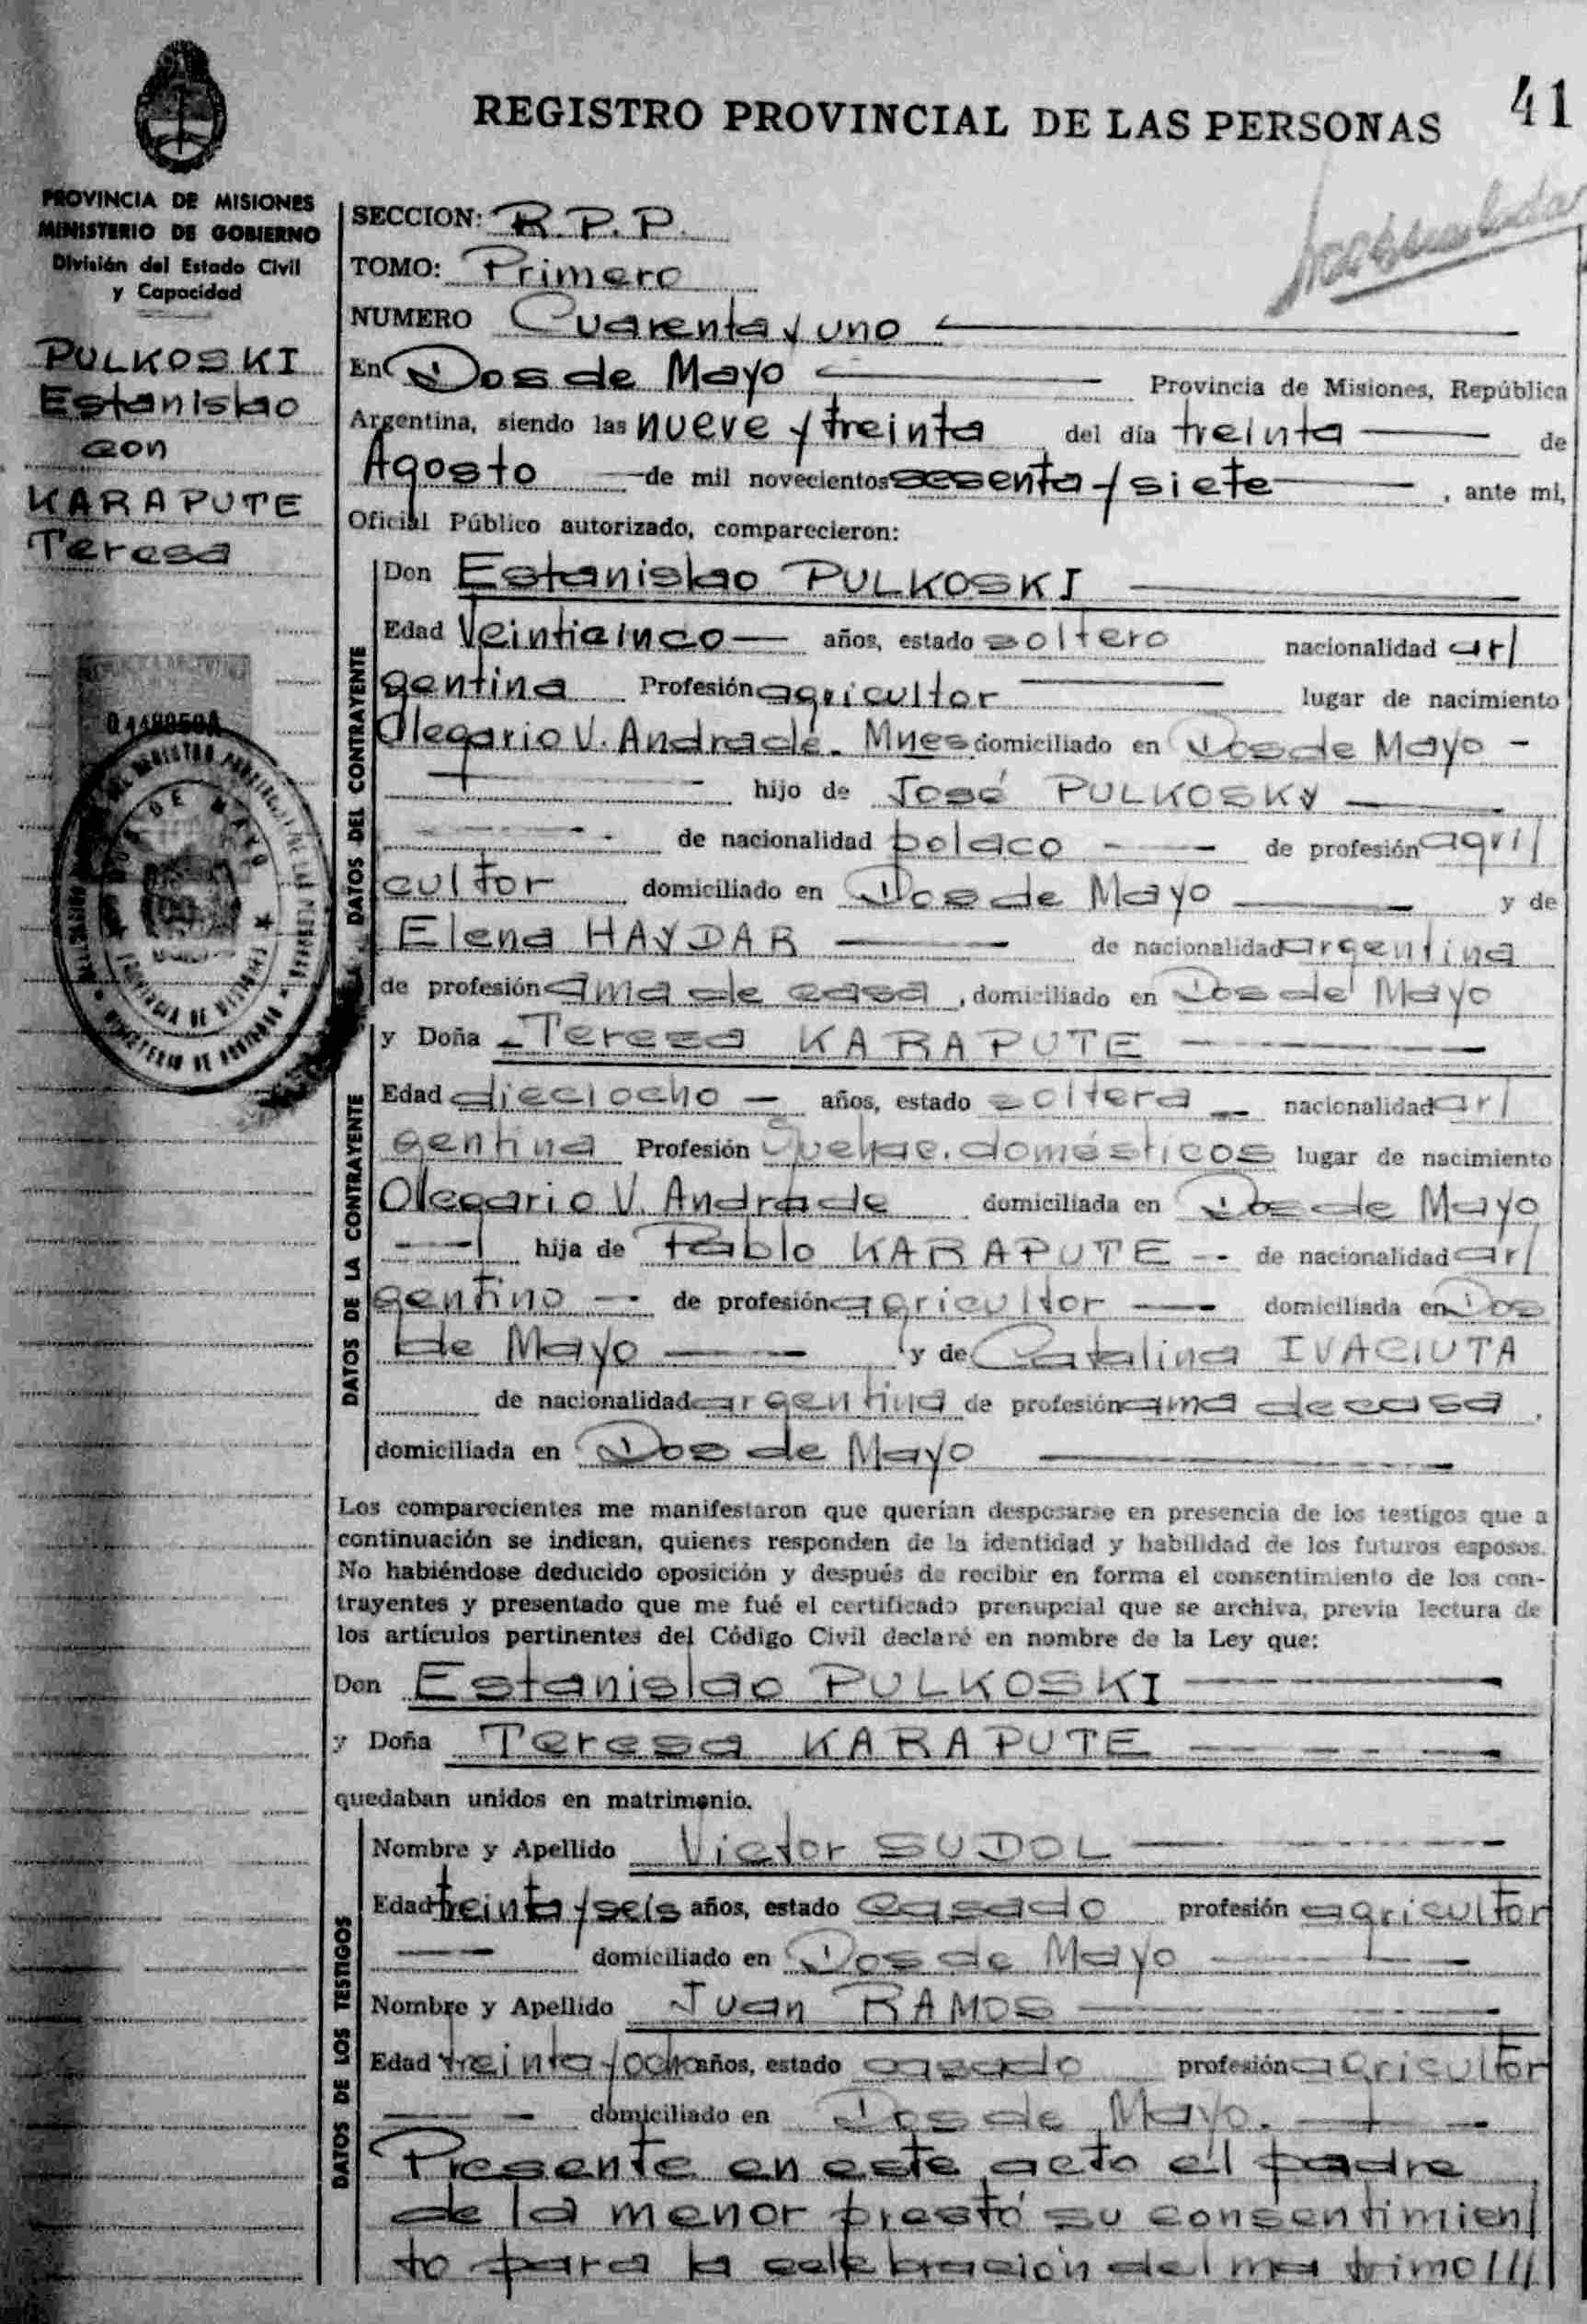 41
REGISTRO PROVINCIAL DE LAS PERSONAS
PROVINCIA DE MISIONES
MINISTERIO DE GOBIERNO
División del Estado Civil
y Capacidad
PULKOSKI
Estanislao
con
KARAPUTE
Teresa
SECCION: R.P.P.
TOMO: Primero
NUMERO Cuarenta y uno
En Dos de Mayo Provincia de Misiones, República
Argentina, siendo las nueve y treinta del día treinta de
Agosto de mil novecientos sesenta y siete, ante mi,
Oficial Público autorizado, comparecieron:
DATOS DEL CONTRAYENTE
Don Estanislao PULKOSKI
Edad Veinticinco años, estado soltero nacionalidad ar/
gentina Profesión agricultor lugar de nacimiento
Olegario V. Andrade. Mnes domiciliado en Dos de Mayo -
hijo de José PULKOSKY
de nacionalidad polaco de profesión agri/
cultor domiciliado en Dos de Mayo y de
Elena HAYDAR de nacionalidad argentina
de profesión ama de casa, domiciliado en Dos de Mayo
y Doña Teresa KARAPUTE
DATOS DE LA CONTRAYENTE
Edad dieciocho años, estado soltera nacionalidad ar/
gentina Profesión Quehac. domésticos lugar de nacimiento
Olegario V. Andrade domiciliada en Dos de Mayo
hija de Pablo KARAPUTE -- de nacionalidad ar/
gentino de profesión agricultor domiciliada en Dos
de Mayo y de Catalina IVACIUTA
de nacionalidad argentina de profesión ama de casa,
domiciliada en Dos de Mayo
Los comparecientes me manifestaron que querían desposarse en presencia de los testigos que a
continuación se indican, quienes responden de la identidad y habilidad de los futuros esposos.
No habiéndose deducido oposición y después de recibir en forma el consentimiento de los con-
trayentes y presentado que me fué el certificado prenupcial que se archiva, previa lectura de
los artículos pertinentes del Código Civil declaré en nombre de la Ley que:
Don Estanislao PULKOSKI
y Doña Teresa KARAPUTE
quedaban unidos en matrimonio.
DATOS DE LOS TESTIGOS
Nombre y Apellido Victor SUDOL
Edad treinta y seis años, estado casado profesión agricultor
domiciliado en Dos de Mayo
Nombre y Apellido Juan RAMOS
Edad treinta y ocho años, estado casado profesión agricultor
domiciliado en Dos de Mayo.
Presente en este acto el padre
de la menor prestó su consentimien/
to para la celebración del matrimo///